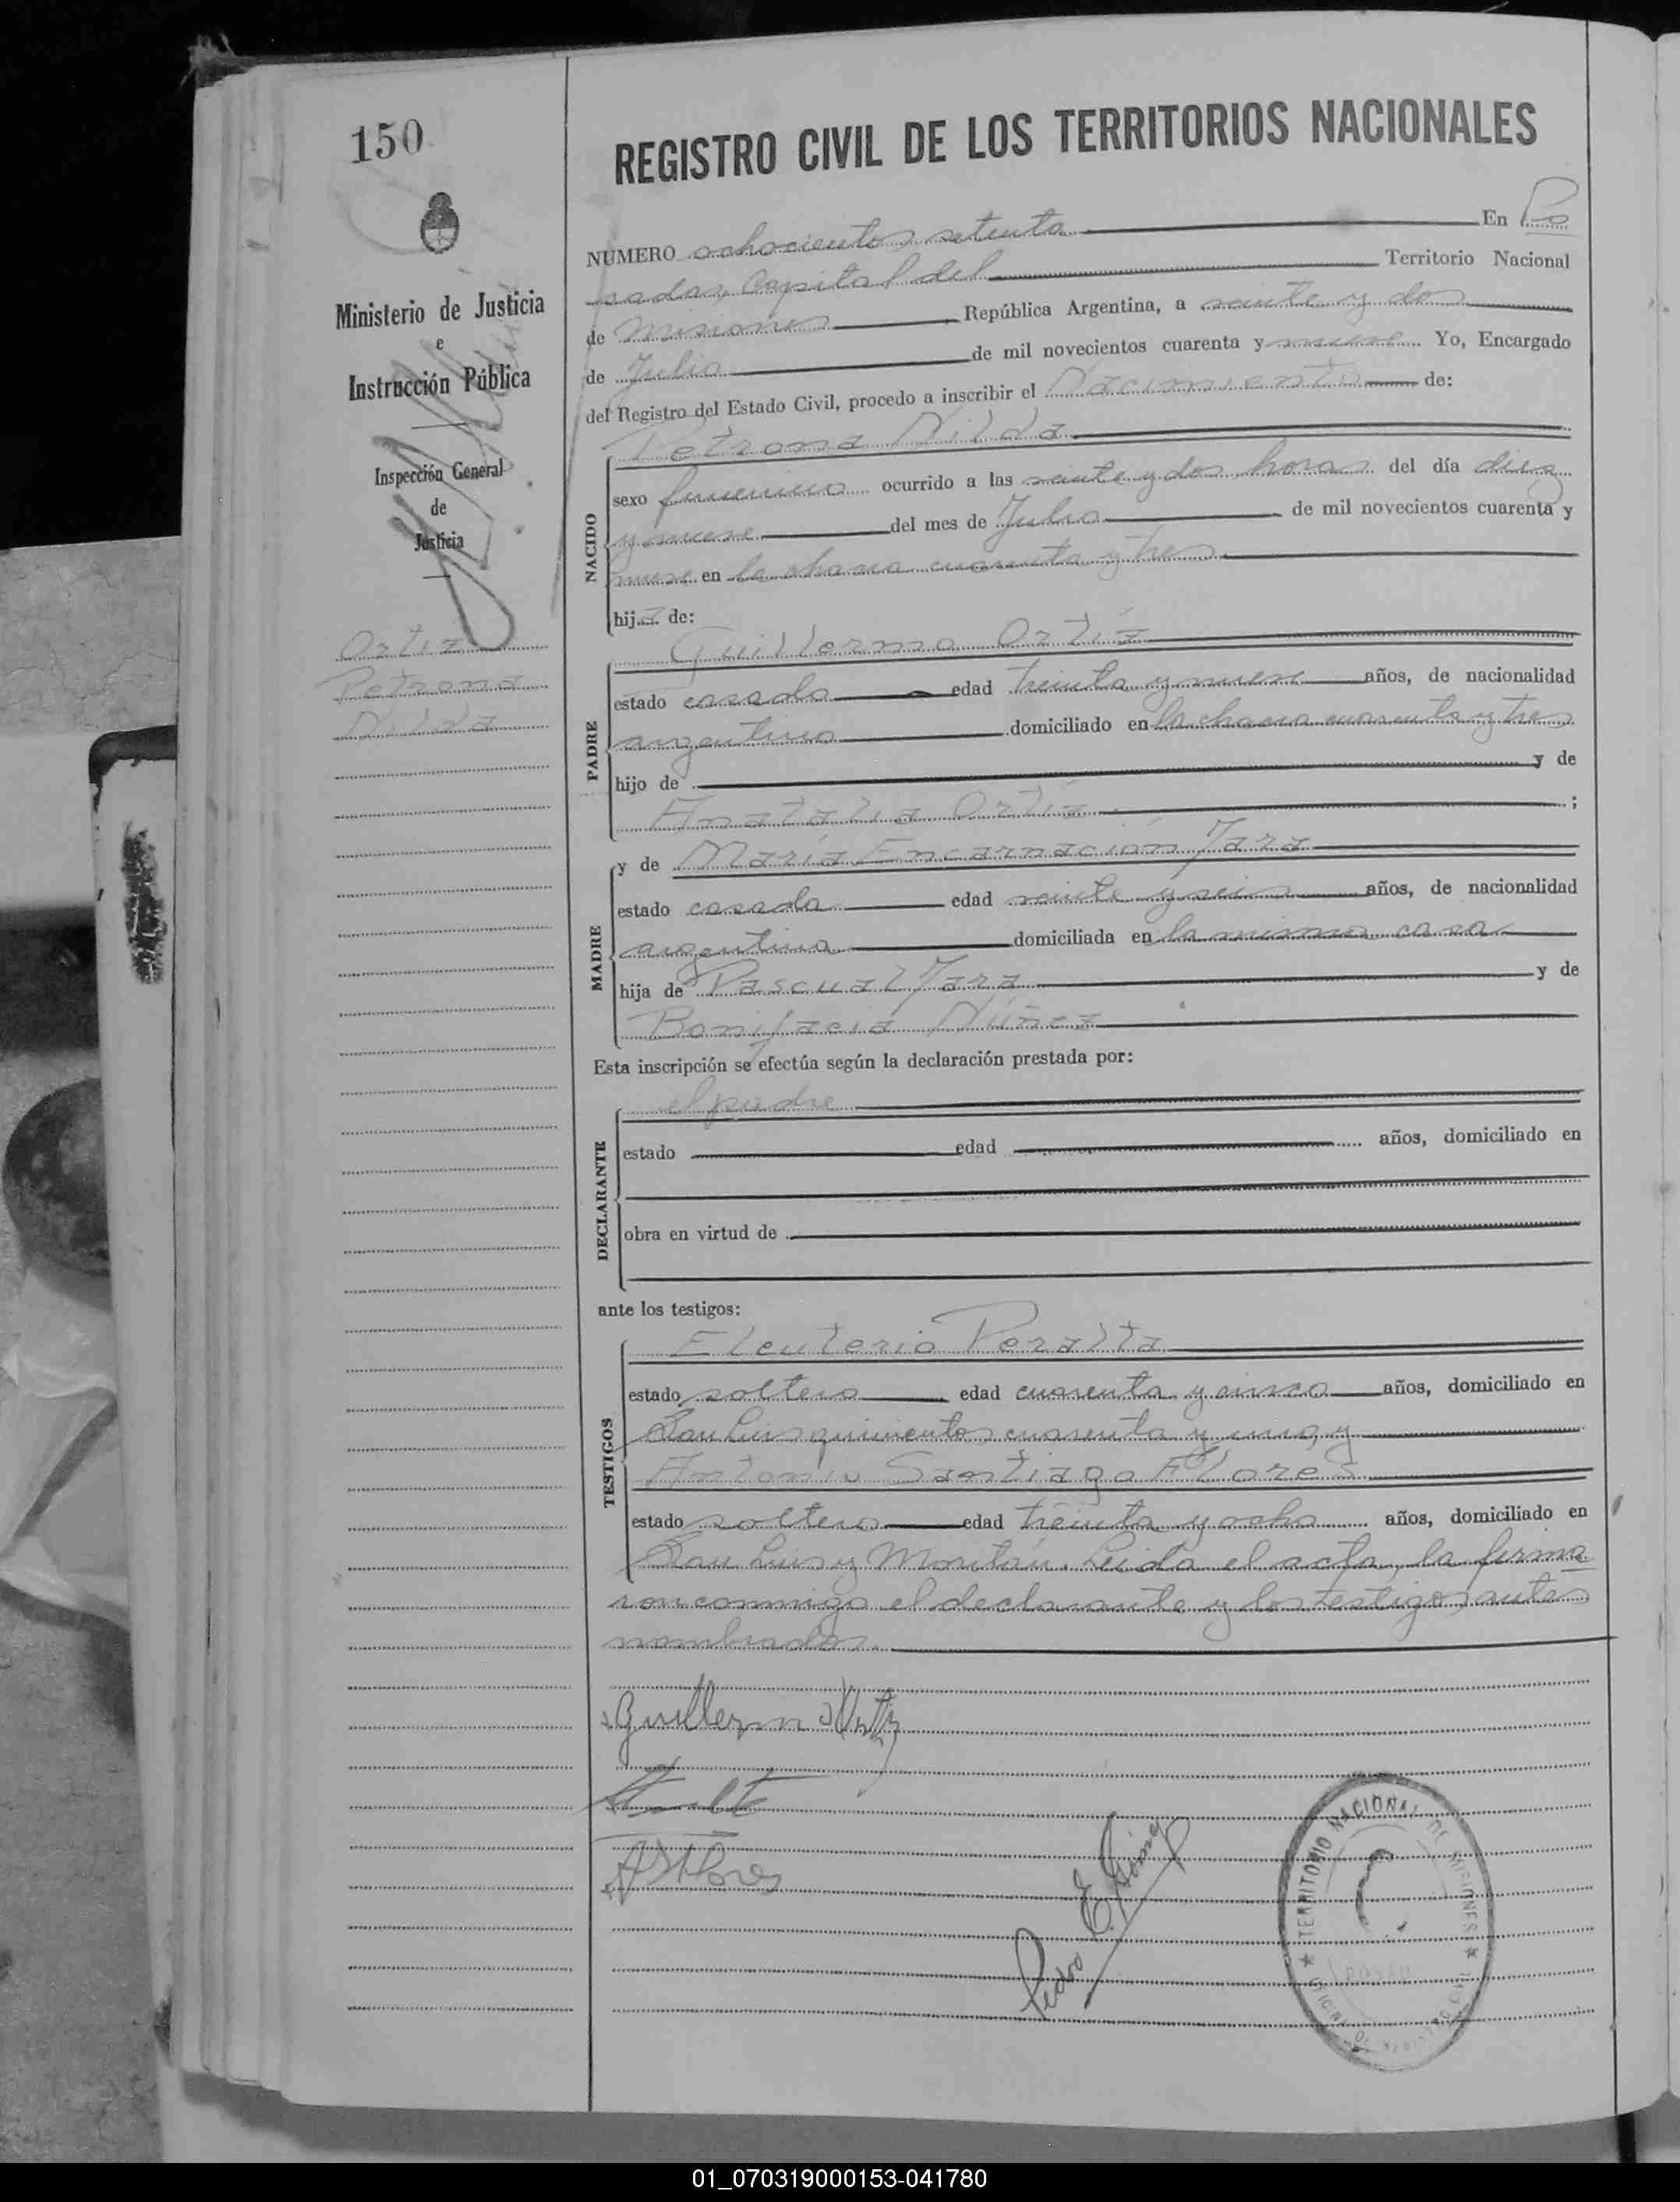 150
REGISTRO CIVIL DE LOS TERRITORIOS NACIONALES
Ministerio de Justicia
e
Instrucción Pública
Inspección General
de
Justicia
Ortiz
Petrona
Nilda
NUMERO ochocientos setenta En Po
sadas, Capital del Territorio Nacional
de Misiones República Argentina, a veinte y dos
de Julio de mil novecientos cuarenta y nueve Yo, Encargado
del Registro del Estado Civil, procedo a inscribir el Nacimiento de:
Petrona Nilda
NACIDO
sexo femenino ocurrido a las veinte y dos horas del día diez
y nueve del mes de Julio de mil novecientos cuarenta y
nueve en la chacra cuarenta y tres
hija de:
Guillermo Ortiz
PADRE
estado casado edad treinta y nueve años, de nacionalidad
argentino domiciliado en la chacra cuarenta y tres
hijo de y de
Anatalia Ortiz ;
MADRE
y de María Encarnación Jara
estado casada edad veinte y seis años, de nacionalidad
argentina domiciliada en la misma casa
hija de Pascual Jara y de
Bonifacia Núñez
Esta inscripción se efectúa según la declaración prestada por:
DECLARANTE
el padre
estado edad años, domiciliado en
obra en virtud de
ante los testigos:
TESTIGOS
Eleuterio Peralta
estado soltero edad cuarenta y cinco años, domiciliado en
San Luis quinientos cuarenta y uno, y
Antonio Santiago Flores
estado soltero edad treinta y ocho años, domiciliado en
San Luis y Moritán. Leida el acta, la firma
ron conmigo el declarante y los testigos antes
nombrados.
Guillermo Ortiz
ASFlores
Pedro E. Gómez
★ TERRITORIO NACIONAL DE MISIONES ★
01_070319000153-041780